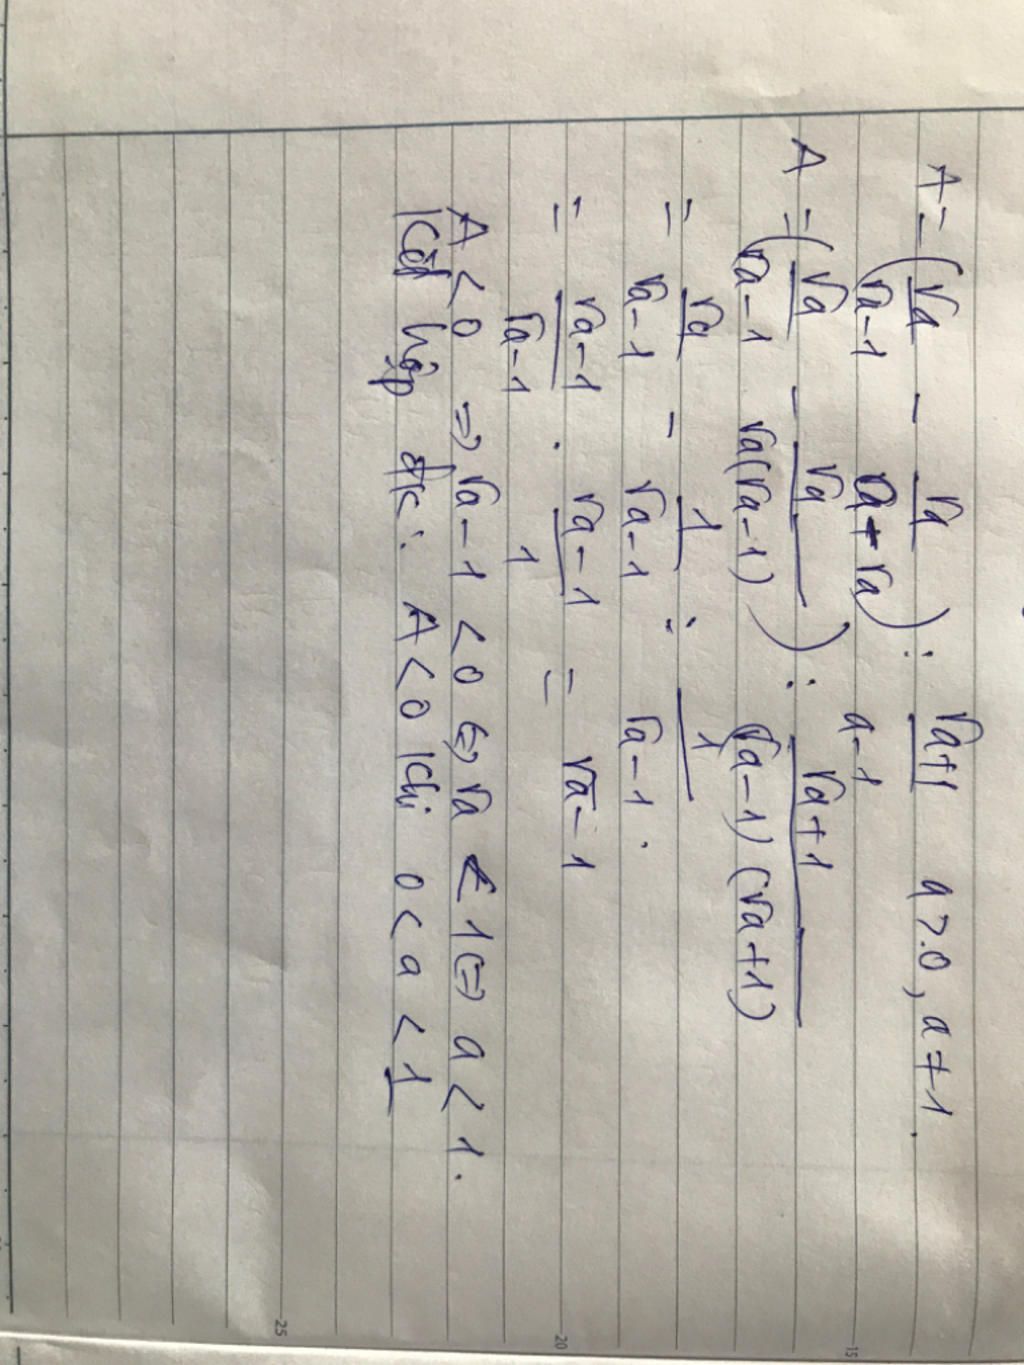 A = ( √a/(√a-1) - √a/(a-√a) ) : (√a+1)/(a-1) a>0, a≠1.
A = ( √a/(√a-1) - √a/(√a(√a-1)) ) : (√a+1)/((√a-1)(√a+1))
= √a/(√a-1) - 1/(√a-1) : 1/(√a-1).
= (√a-1)/(√a-1) . (√a-1)/1 = √a-1
A < 0 => √a-1 < 0 <=> √a < 1 <=> a < 1.
Kết hợp đk: A < 0 khi 0 < a < 1
15
20
25